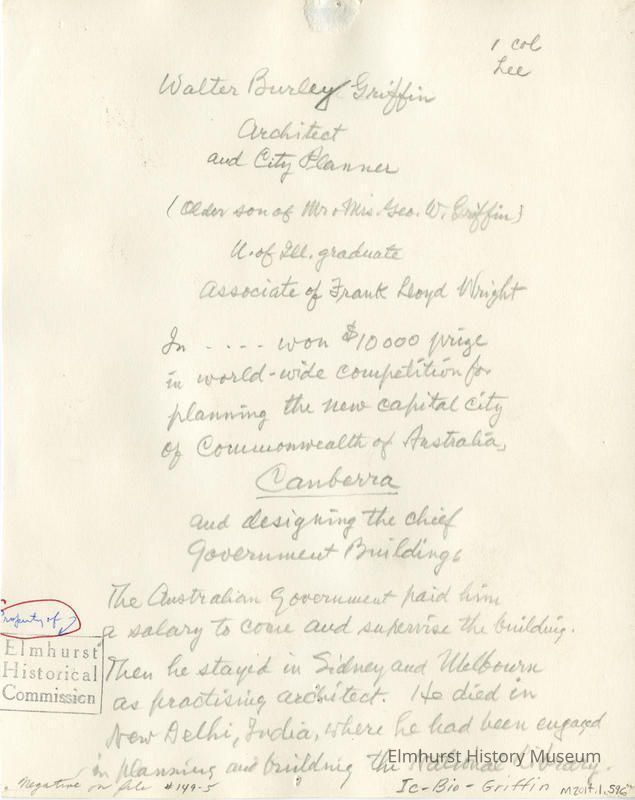 1 col
Lee
Walter Burley Griffin
Architect
and City Planner
(Older son of Mr & Mrs. Geo. W. Griffin)
U. of Ill. graduate
Associate of Frank Lloyd Wright
In - - - - won $10000 prize
in world-wide competition for
planning the new capital city
of Commonwealth of Australia,
Canberra
and designing the chief
Government Buildings
The Australian Government paid him
a salary to come and supervise the building.
Then he stayed in Sidney and Melbourn
as practising architect. He died in
New Delhi, India, where he had been engaged
in planning and building the National Library.
Property of
Elmhurst
Historical
Commission
Elmhurst History Museum
Negative on file #149-5
Ic-Bio-Griffin
M2017.1.596